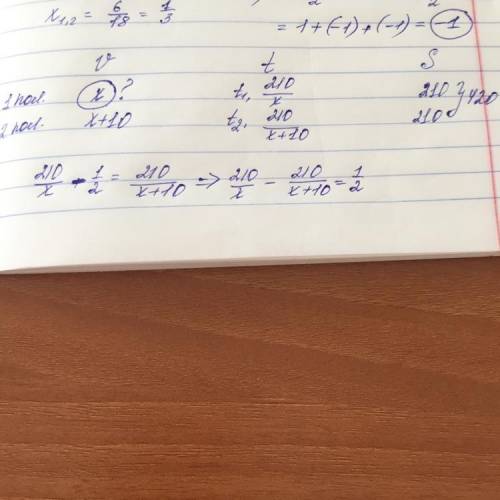 x₁,₂ = 6/18 = 1/3
2 2
= 1 + (-1) + (-1) = -1
v t S
1 пол. x ? t₁, 210/x 210 } 420
2 пол. x+10 t₂, 210/(x+10) 210
210/x - 1/2 = 210/(x+10) => 210/x - 210/(x+10) = 1/2